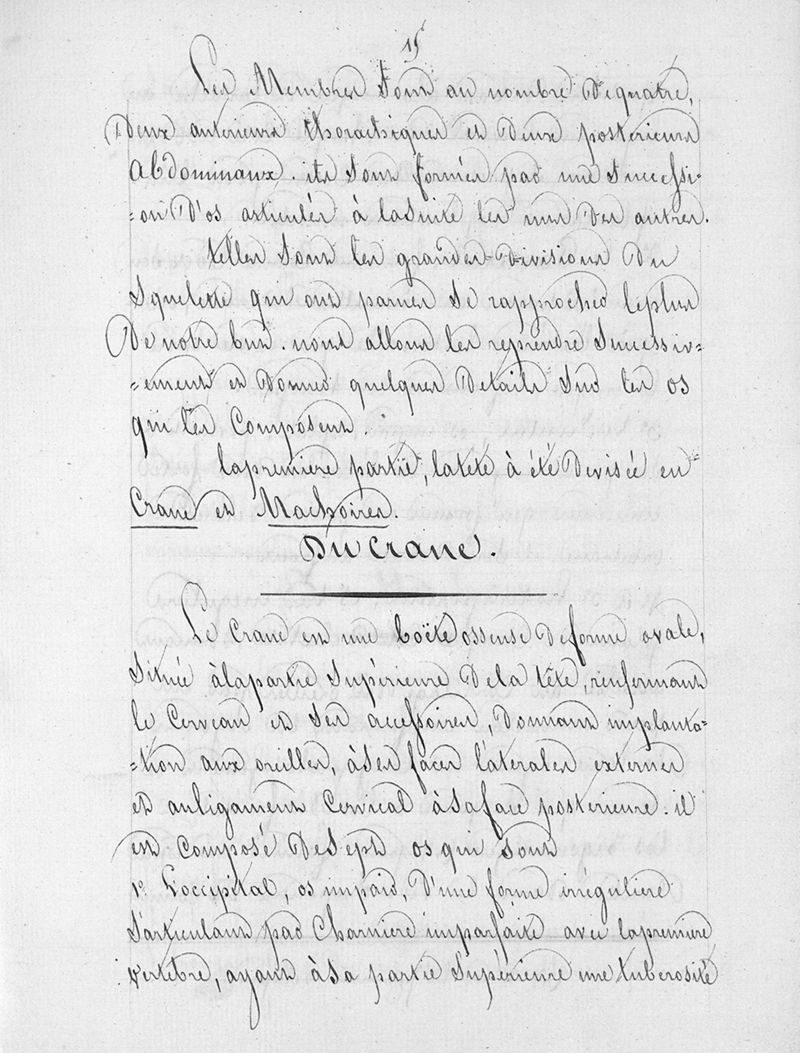 15
Les Membres sont au nombre de quatre,
Deux anterieurs thorachiques et deux postérieurs
Abdominaux. ils sont formés par une successi-
-on d'os articulés à la suite les uns des autres.
telles sont les grandes divisions du
squelette qui ont parues se rapprocher le plus
De notre but. nous allons les reprendre successiv-
-ement et donner quelques détails sur les os
qui les composent.
la première partie, la tête à été divisée en
Crane et Machoires.
Du Crane.
Le Crane est une boëte osseuse de forme ovale,
située à la partie supérieure de la tête, renfermant
le Cerveau et ses accessoires, donnant implanta-
-tion aux oreilles, à ses faces latérales externes
et au ligament Cervical à sa face posterieure. il
est composé de sept os qui sont
1º L'occipital, os impair, d'une forme irrégulière
s'articulant par Charnière imparfaite avec la première
vertèbre, ayant à sa partie supérieure une tuberosité